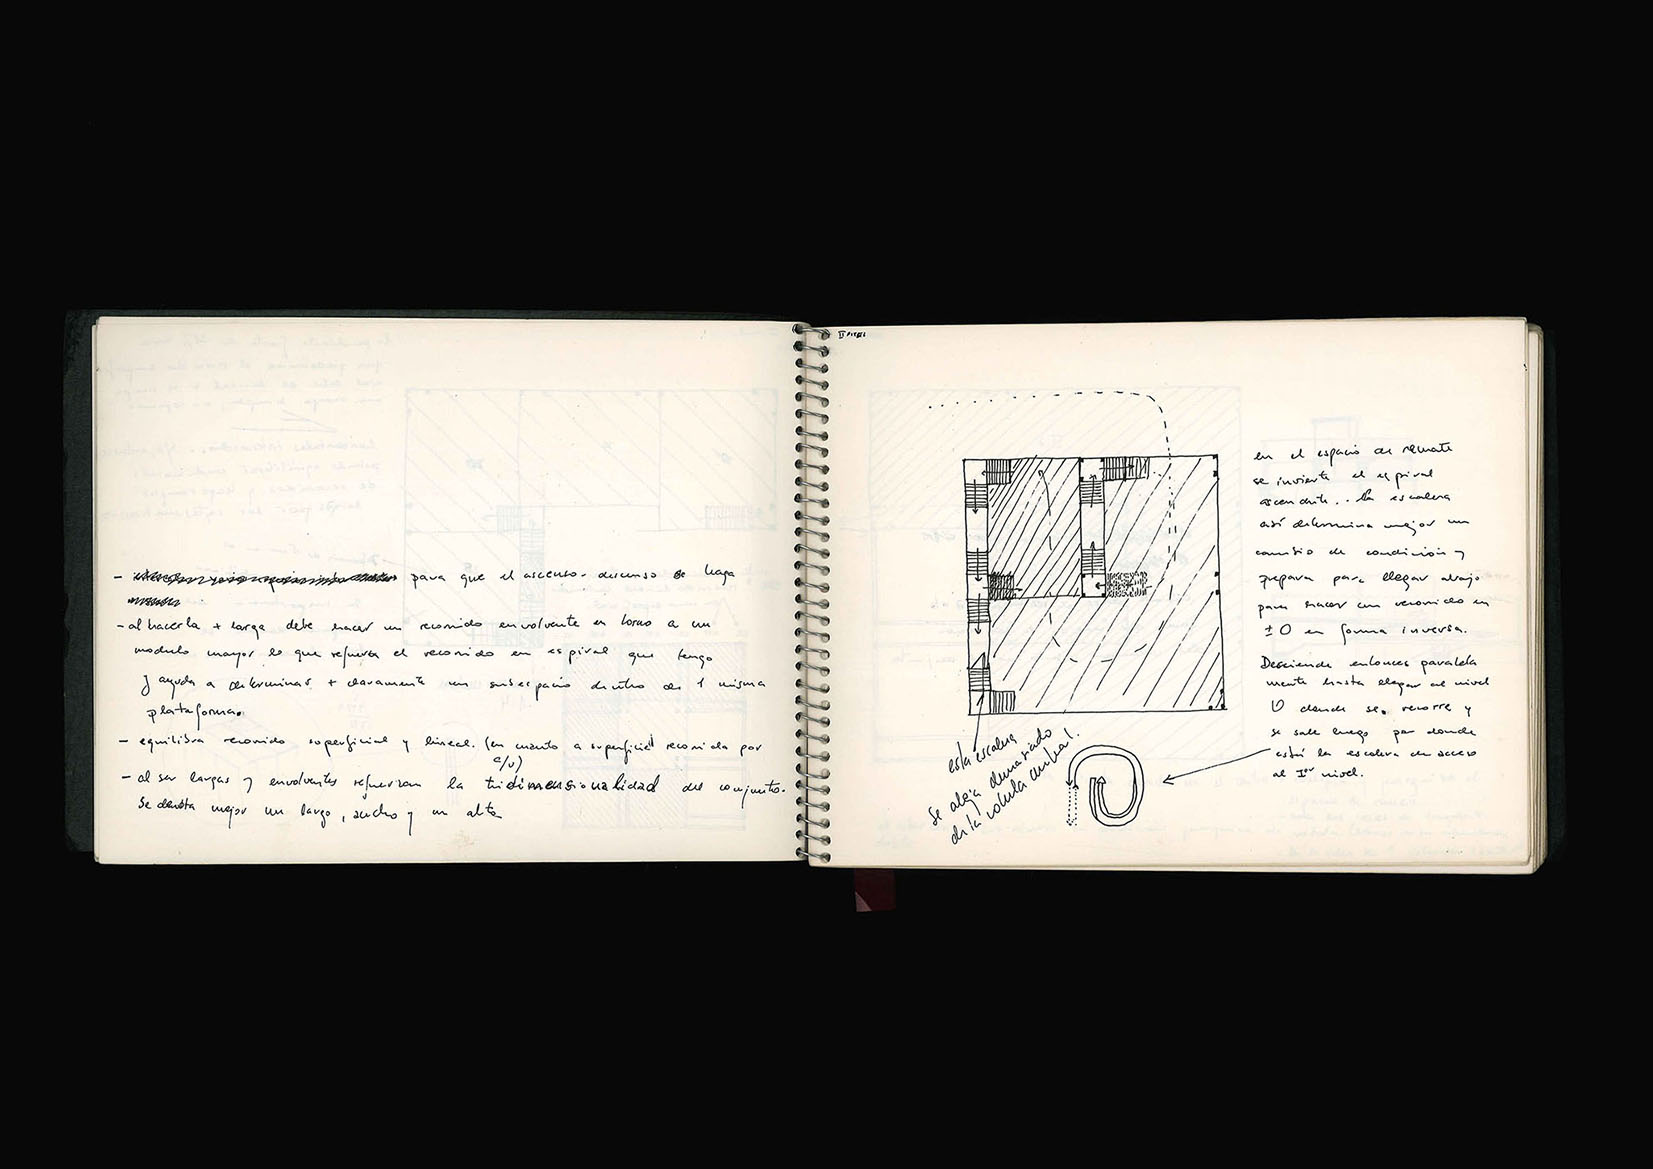 para que el ascenso-descenso se haga
- al hacerla + larga debe hacer un recorrido envolvente en torno a un
modulo mayor lo que refuerza el recorrido en espiral que tengo
y ayuda a determinar + claramente un subespacio dentro de 1 misma
plataforma.
- equilibra recorrido superficial y lineal. (en cuanto a superficie recorrida por
c/u)
- al ser largas y envolventes refuerzan la tridimensionalidad del conjunto.
Se denota mejor un largo, ancho y un alto
en el espacio de remate
se invierte el espiral
ascendente.. la escalera
así determina mejor un
cambio de condición y
prepara para llegar abajo
para hacer un recorrido en
±0 en forma inversa.
Desciende entonces paralela
mente hasta llegar al nivel
0 donde se recorre y
se sale luego por donde
está la escalera de acceso
al 1er nivel.
esta escalera
se aleja demasiado
de la volada central.